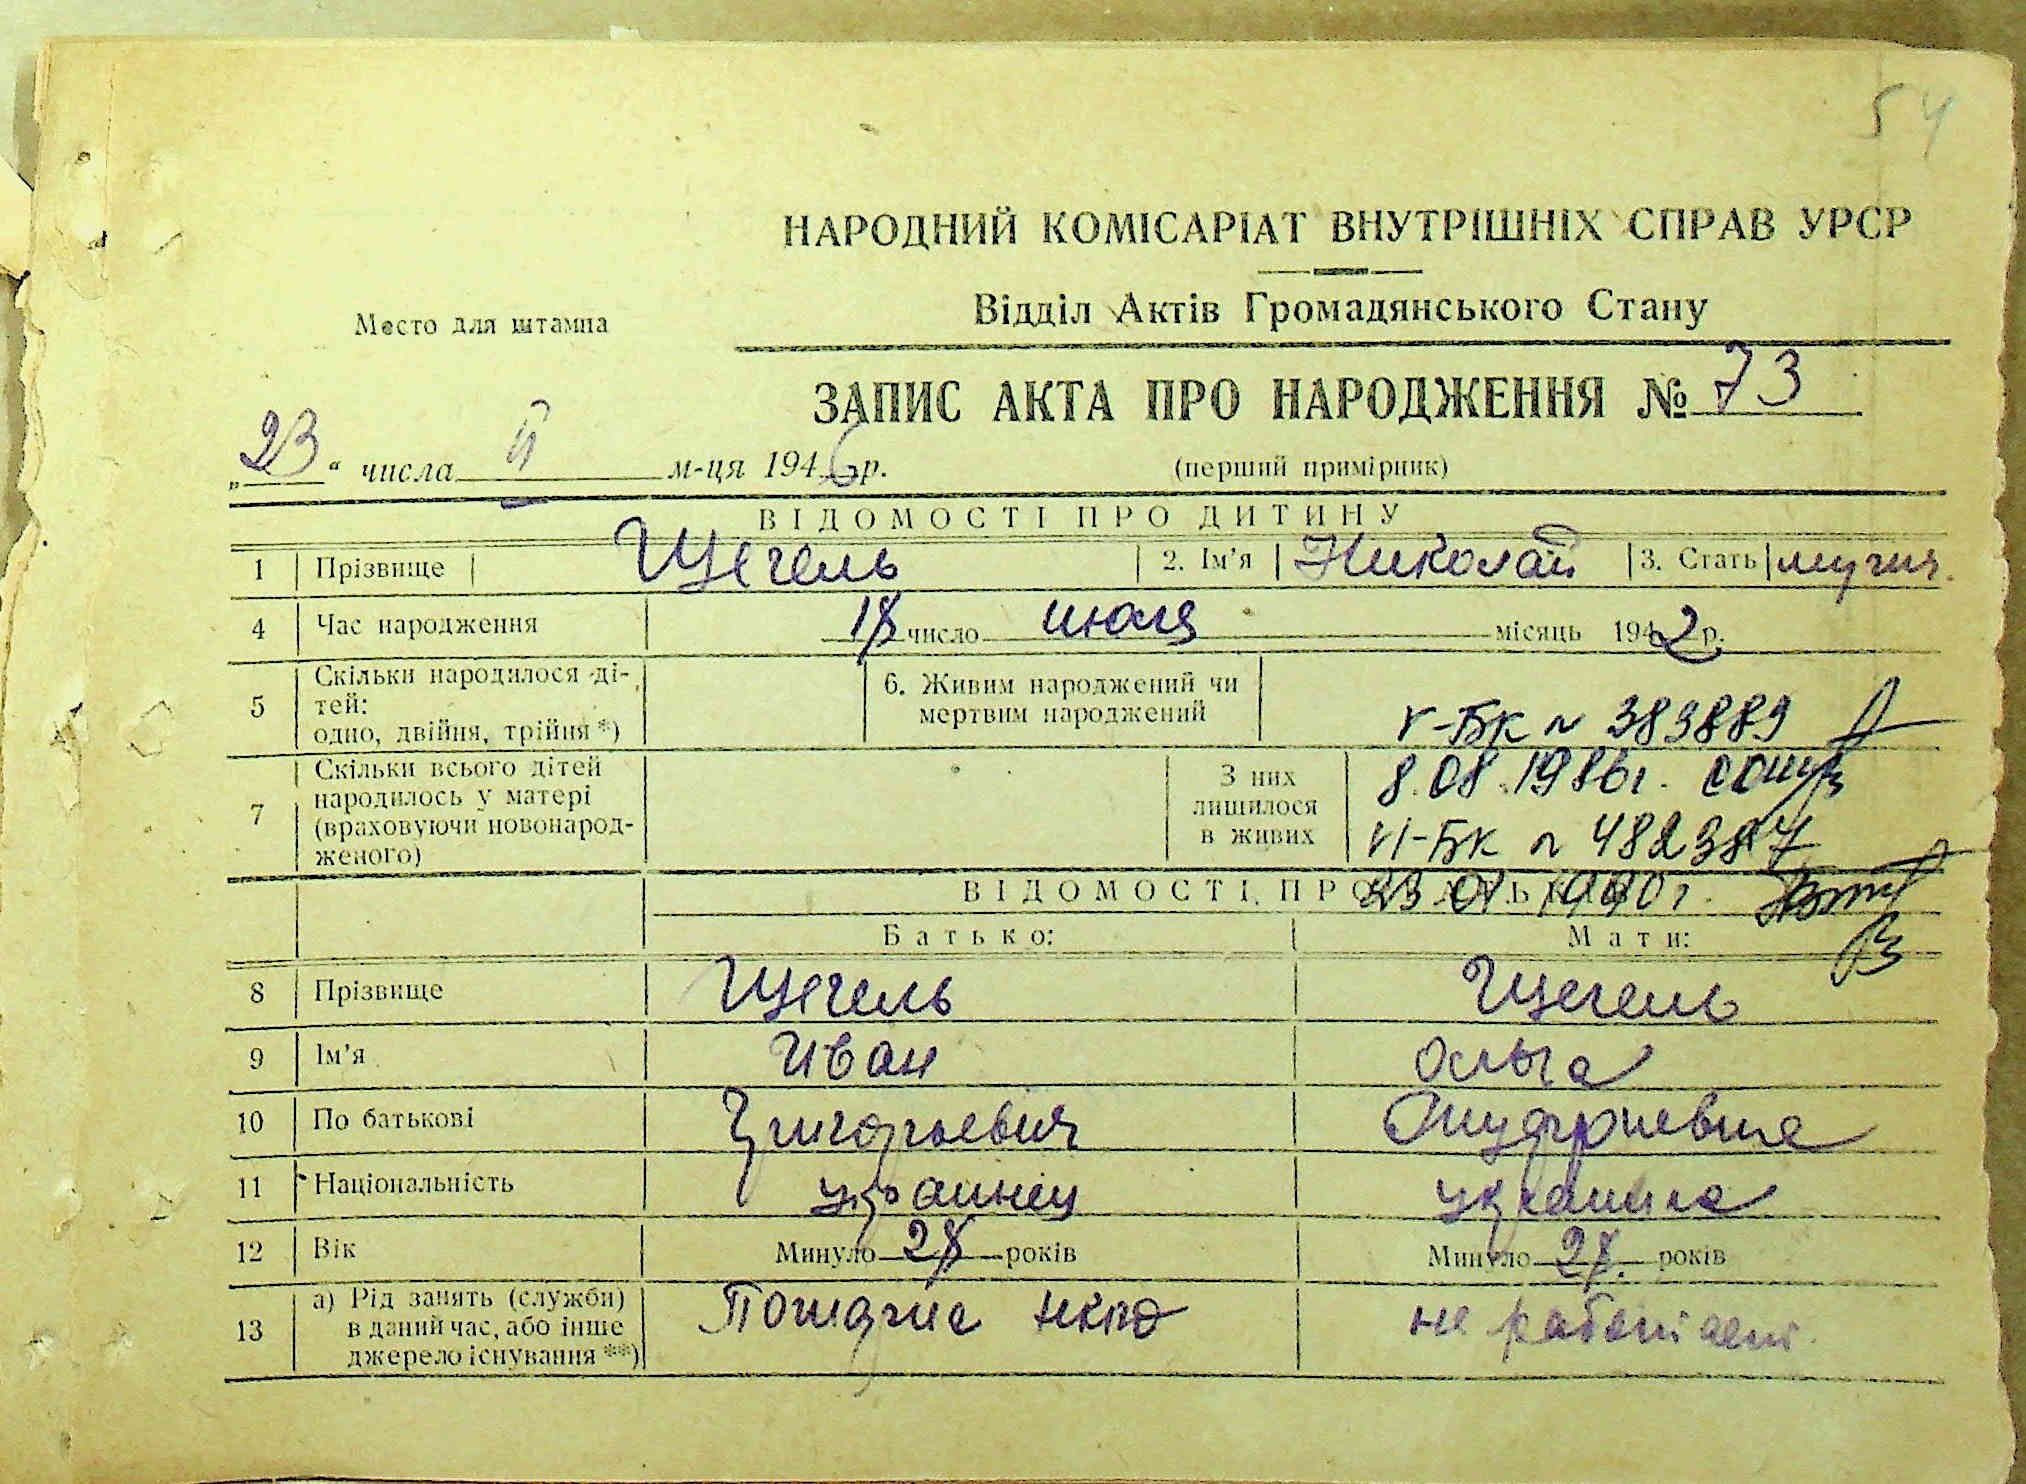 54
НАРОДНИЙ КОМІСАРІАТ ВНУТРІШНІХ СПРАВ УРСР
Відділ Актів Громадянського Стану
Место для штампа
ЗАПИС АКТА ПРО НАРОДЖЕННЯ № 73
„23“ числа II м-ця 1946 р. (перший примірник)
ВІДОМОСТІ ПРО ДИТИНУ
1 Прізвище Щегель 2. Ім'я Николай 3. Стать мужч.
4 Час народження 18 число июля місяць 1942 р.
5 Скільки народилося ді-
тей:
одно, двійня, трійня *)
6. Живим народжений чи
мертвим народжений
V-БК № 383889
7 Скільки всього дітей
народилось у матері
(враховуючи новонарод-
женого)
З них
лишилося
в живих
8.08.1986г.
VI-БК № 482387
ВІДОМОСТІ ПРО БАТЬКІВ
23 01 1990г.
Батько: Мати:
8 Прізвище Щегель Щегель
9 Ім'я Иван Ольга
10 По батькові Григорьевич
11 Національність украинец украинка
12 Вік Минуло 28 років Минуло 28 років
13 а) Рід занять (служби)
в даний час, або інше
джерело існування **)
не работает.